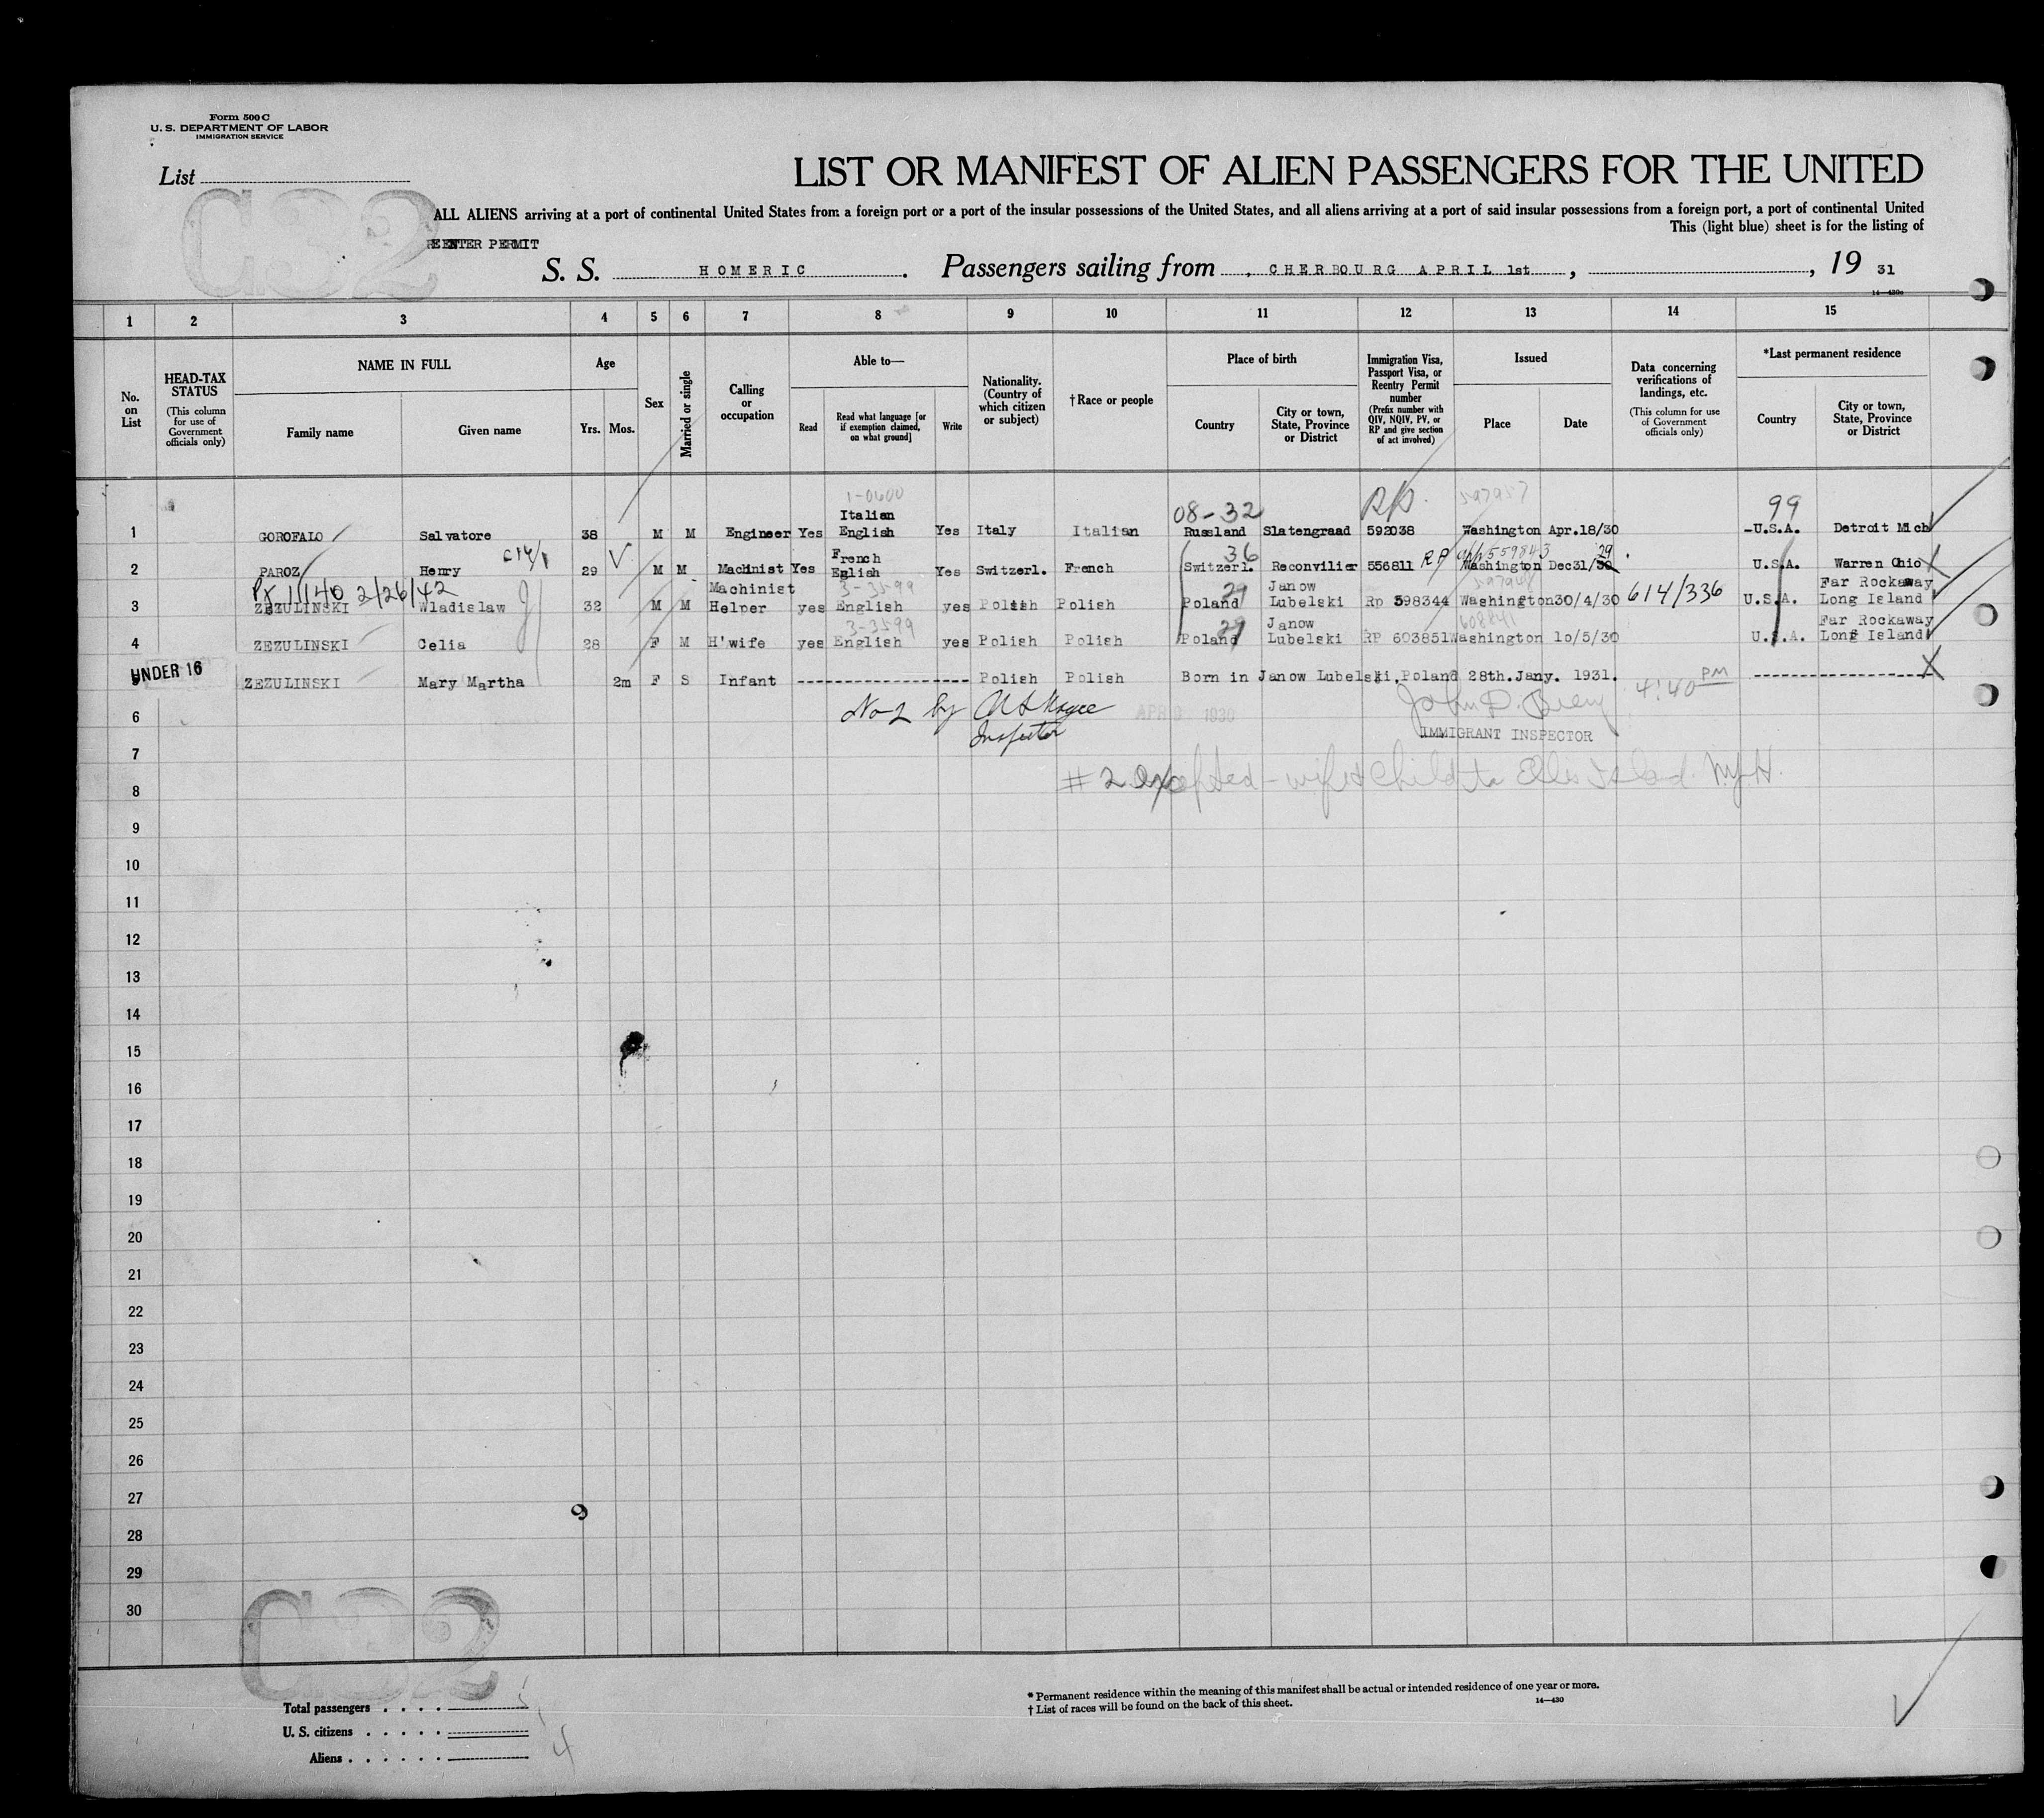 Form 500 C
U. S. DEPARTMENT OF LABOR
IMMIGRATION SERVICE
List
C32
LIST OR MANIFEST OF ALIEN PASSENGERS FOR THE UNITED
ALL ALIENS arriving at a port of continental United States from a foreign port or a port of the insular possessions of the United States, and all aliens arriving at a port of said insular possessions from a foreign port, a port of continental United
This (light blue) sheet is for the listing of
REENTER PERMIT
S. S. HOMERIC. Passengers sailing from CHERBOURG APRIL 1st, , 19 31
14—430c
1 2 3 4 5 6 7 8 9 10 11 12 13 14 15
No. on List
HEAD-TAX STATUS (This column for use of Government officials only)
NAME IN FULL
Family name Given name
Age
Yrs. Mos.
Sex
Married or single
Calling or occupation
Able to—
Read Read what language [or if exemption claimed, on what ground] Write
Nationality. (Country of which citizen or subject)
†Race or people
Place of birth
Country City or town, State, Province or District
Immigration Visa, Passport Visa, or Reentry Permit number (Prefix number with QIV, NQIV, PV, or RP and give section of act involved)
Issued
Place Date
Data concerning verifications of landings, etc. (This column for use of Government officials only)
*Last permanent residence
Country City or town, State, Province or District
1-0600 597957
08-32 99
1 GOROFALO Salvatore 38 M M Engineer Yes Italian English Yes Italy Italian Russland Slatengraad 592038 Washington Apr.18/30 U.S.A. Detroit Mich
36 559843 29
2 PAROZ Henry 29 M M Machinist Yes French Eglish Yes Switzerl. French Switzerl. Reconvilier 556811 RP Washington Dec31/30 U.S.A. Warren Ohio
11140 2/26/42 3-3599 29
3 ZEZULINSKI Wladislaw 32 M M Machinist Helper yes English yes Polish Polish Poland Janow Lubelski Rp 598344 Washington 30/4/30 614/336 U.S.A. Far Rockaway Long Island
3-3599 29 608841
4 ZEZULINSKI Celia 28 F M H'wife yes English yes Polish Polish Poland Janow Lubelski RP 603851 Washington 10/5/30 U.S.A. Far Rockaway Long Island
UNDER 16
5 ZEZULINSKI Mary Martha 2m F S Infant Polish Polish Born in Janow Lubelski, Poland 28th. Jany. 1931.
4:40 PM
6 No 2 by
Inspector
IMMIGRANT INSPECTOR
7
8 # 2 - wife & child to Ellis Island
9
10
11
12
13
14
15
16
17
18
19
20
21
22
23
24
25
26
27
28
29
30
C32
Total passengers
U. S. citizens
Aliens 4
* Permanent residence within the meaning of this manifest shall be actual or intended residence of one year or more.
† List of races will be found on the back of this sheet.
14—430